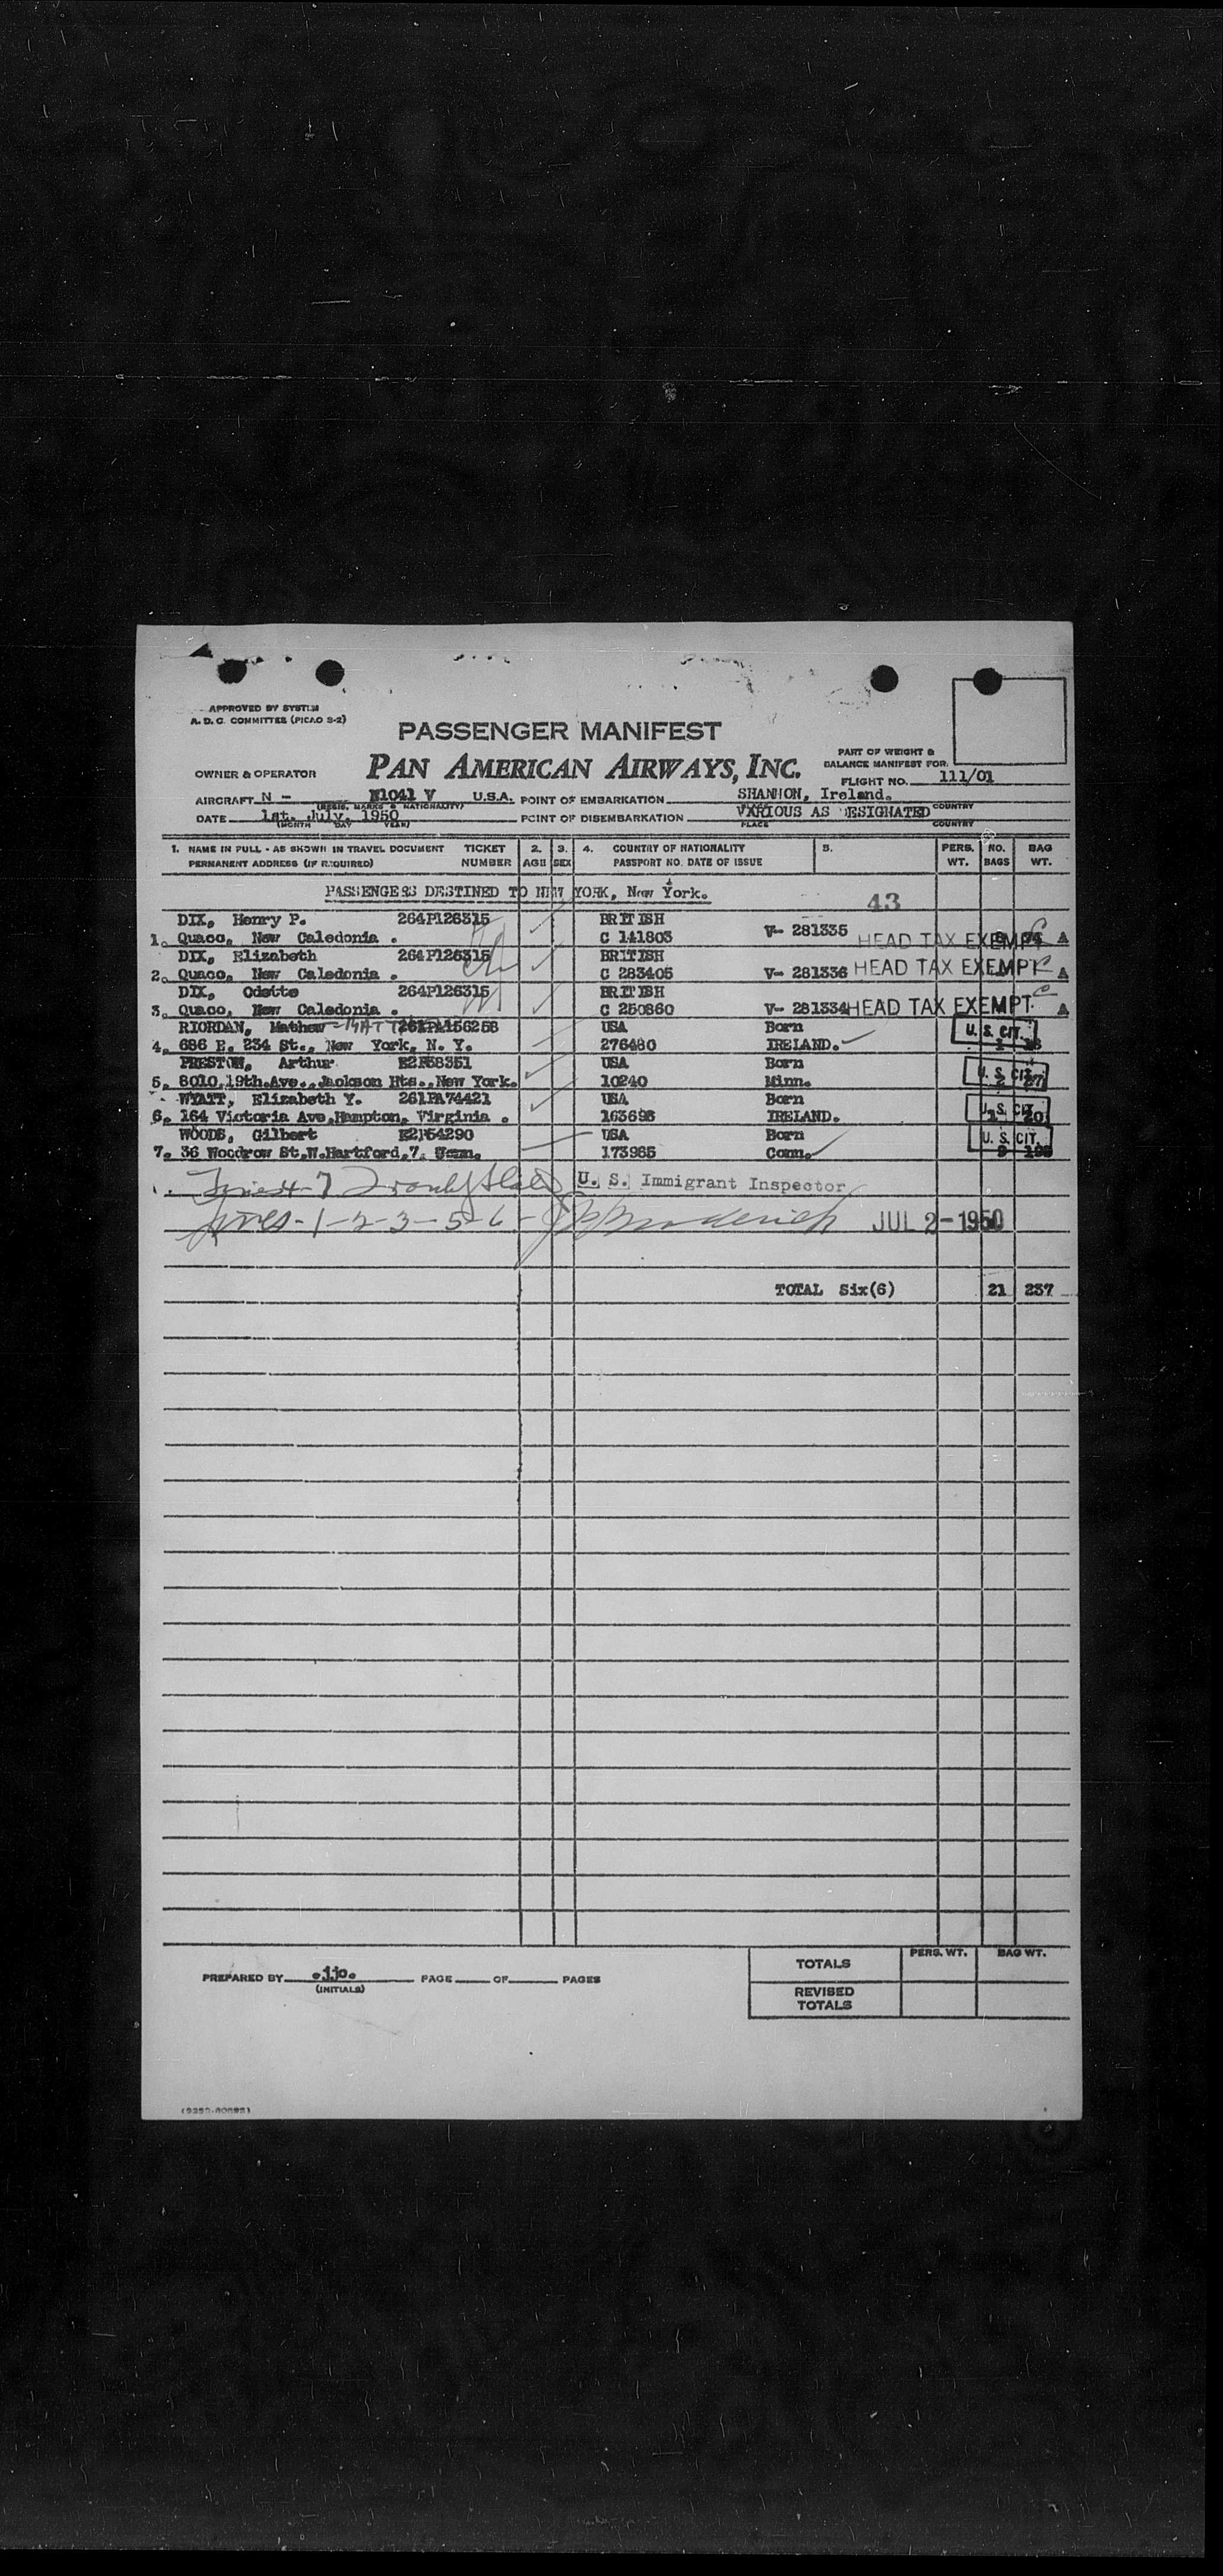 APPROVED BY SYSTEM
A. D. C. COMMITTEE (PICAO S-2)
PASSENGER MANIFEST
PAN AMERICAN AIRWAYS, INC.
PART OF WEIGHT &
BALANCE MANIFEST FOR:
OWNER & OPERATOR
FLIGHT NO. 111/01
AIRCRAFT N - N1041 V U.S.A. POINT OF EMBARKATION SHANNON, Ireland.
(REGIS. MARKS & NATIONALITY) COUNTRY
DATE 1st. July. 1950 POINT OF DISEMBARKATION VARIOUS AS DESIGNATED
(MONTH DAY YEAR) PLACE COUNTRY
1. NAME IN FULL - AS SHOWN IN TRAVEL DOCUMENT TICKET 2. 3. 4. COUNTRY OF NATIONALITY 5. PERS. NO. BAG
PERMANENT ADDRESS (IF REQUIRED) NUMBER AGE SEX PASSPORT NO. DATE OF ISSUE WT. BAGS WT.
PASSENGERS DESTINED TO NEW YORK, New York.
43
DIX, Henry P. 264P126315 BRITISH
1. Quaco, New Caledonia . C 141803 V- 281335 HEAD TAX EXEMPT A
DIX, Elizabeth 264P126315 BRITISH
2. Quaco, New Caledonia . C 283405 V- 281336 HEAD TAX EXEMPT A
DIX, Odette 264P126315 BRITISH
3. Quaco, New Caledonia . C 250860 V- 281334 HEAD TAX EXEMPT A
RIORDAN, Mathew - MATT 261PA156258 USA Born
4. 686 E. 234 St., New York, N. Y. 276480 IRELAND. U. S. CIT.
PRESTON, Arthur E2P58351 USA Born
5. 8010,19th.Ave.,Jackson Hts.,New York. 10240 Minn. U. S. CIT.
WYATT, Elizabeth Y. 261PA74421 USA Born
6. 164 Victoria Ave,Hampton, Virginia . 163698 IRELAND. U. S. CIT. 20
WOODS, Gilbert E2P54290 USA Born
7. 36 Woodrow St,W.Hartford,7. Conn. 173965 Conn. U. S. CIT.
Line 4-7 U. S. Immigrant Inspector
Lines-1-2-3-5-6- Broderick JUL 2-1950
TOTAL Six(6) 21 237
PREPARED BY .jjo. PAGE OF PAGES
(INITIALS)
PERS. WT. BAG WT.
TOTALS
REVISED
TOTALS